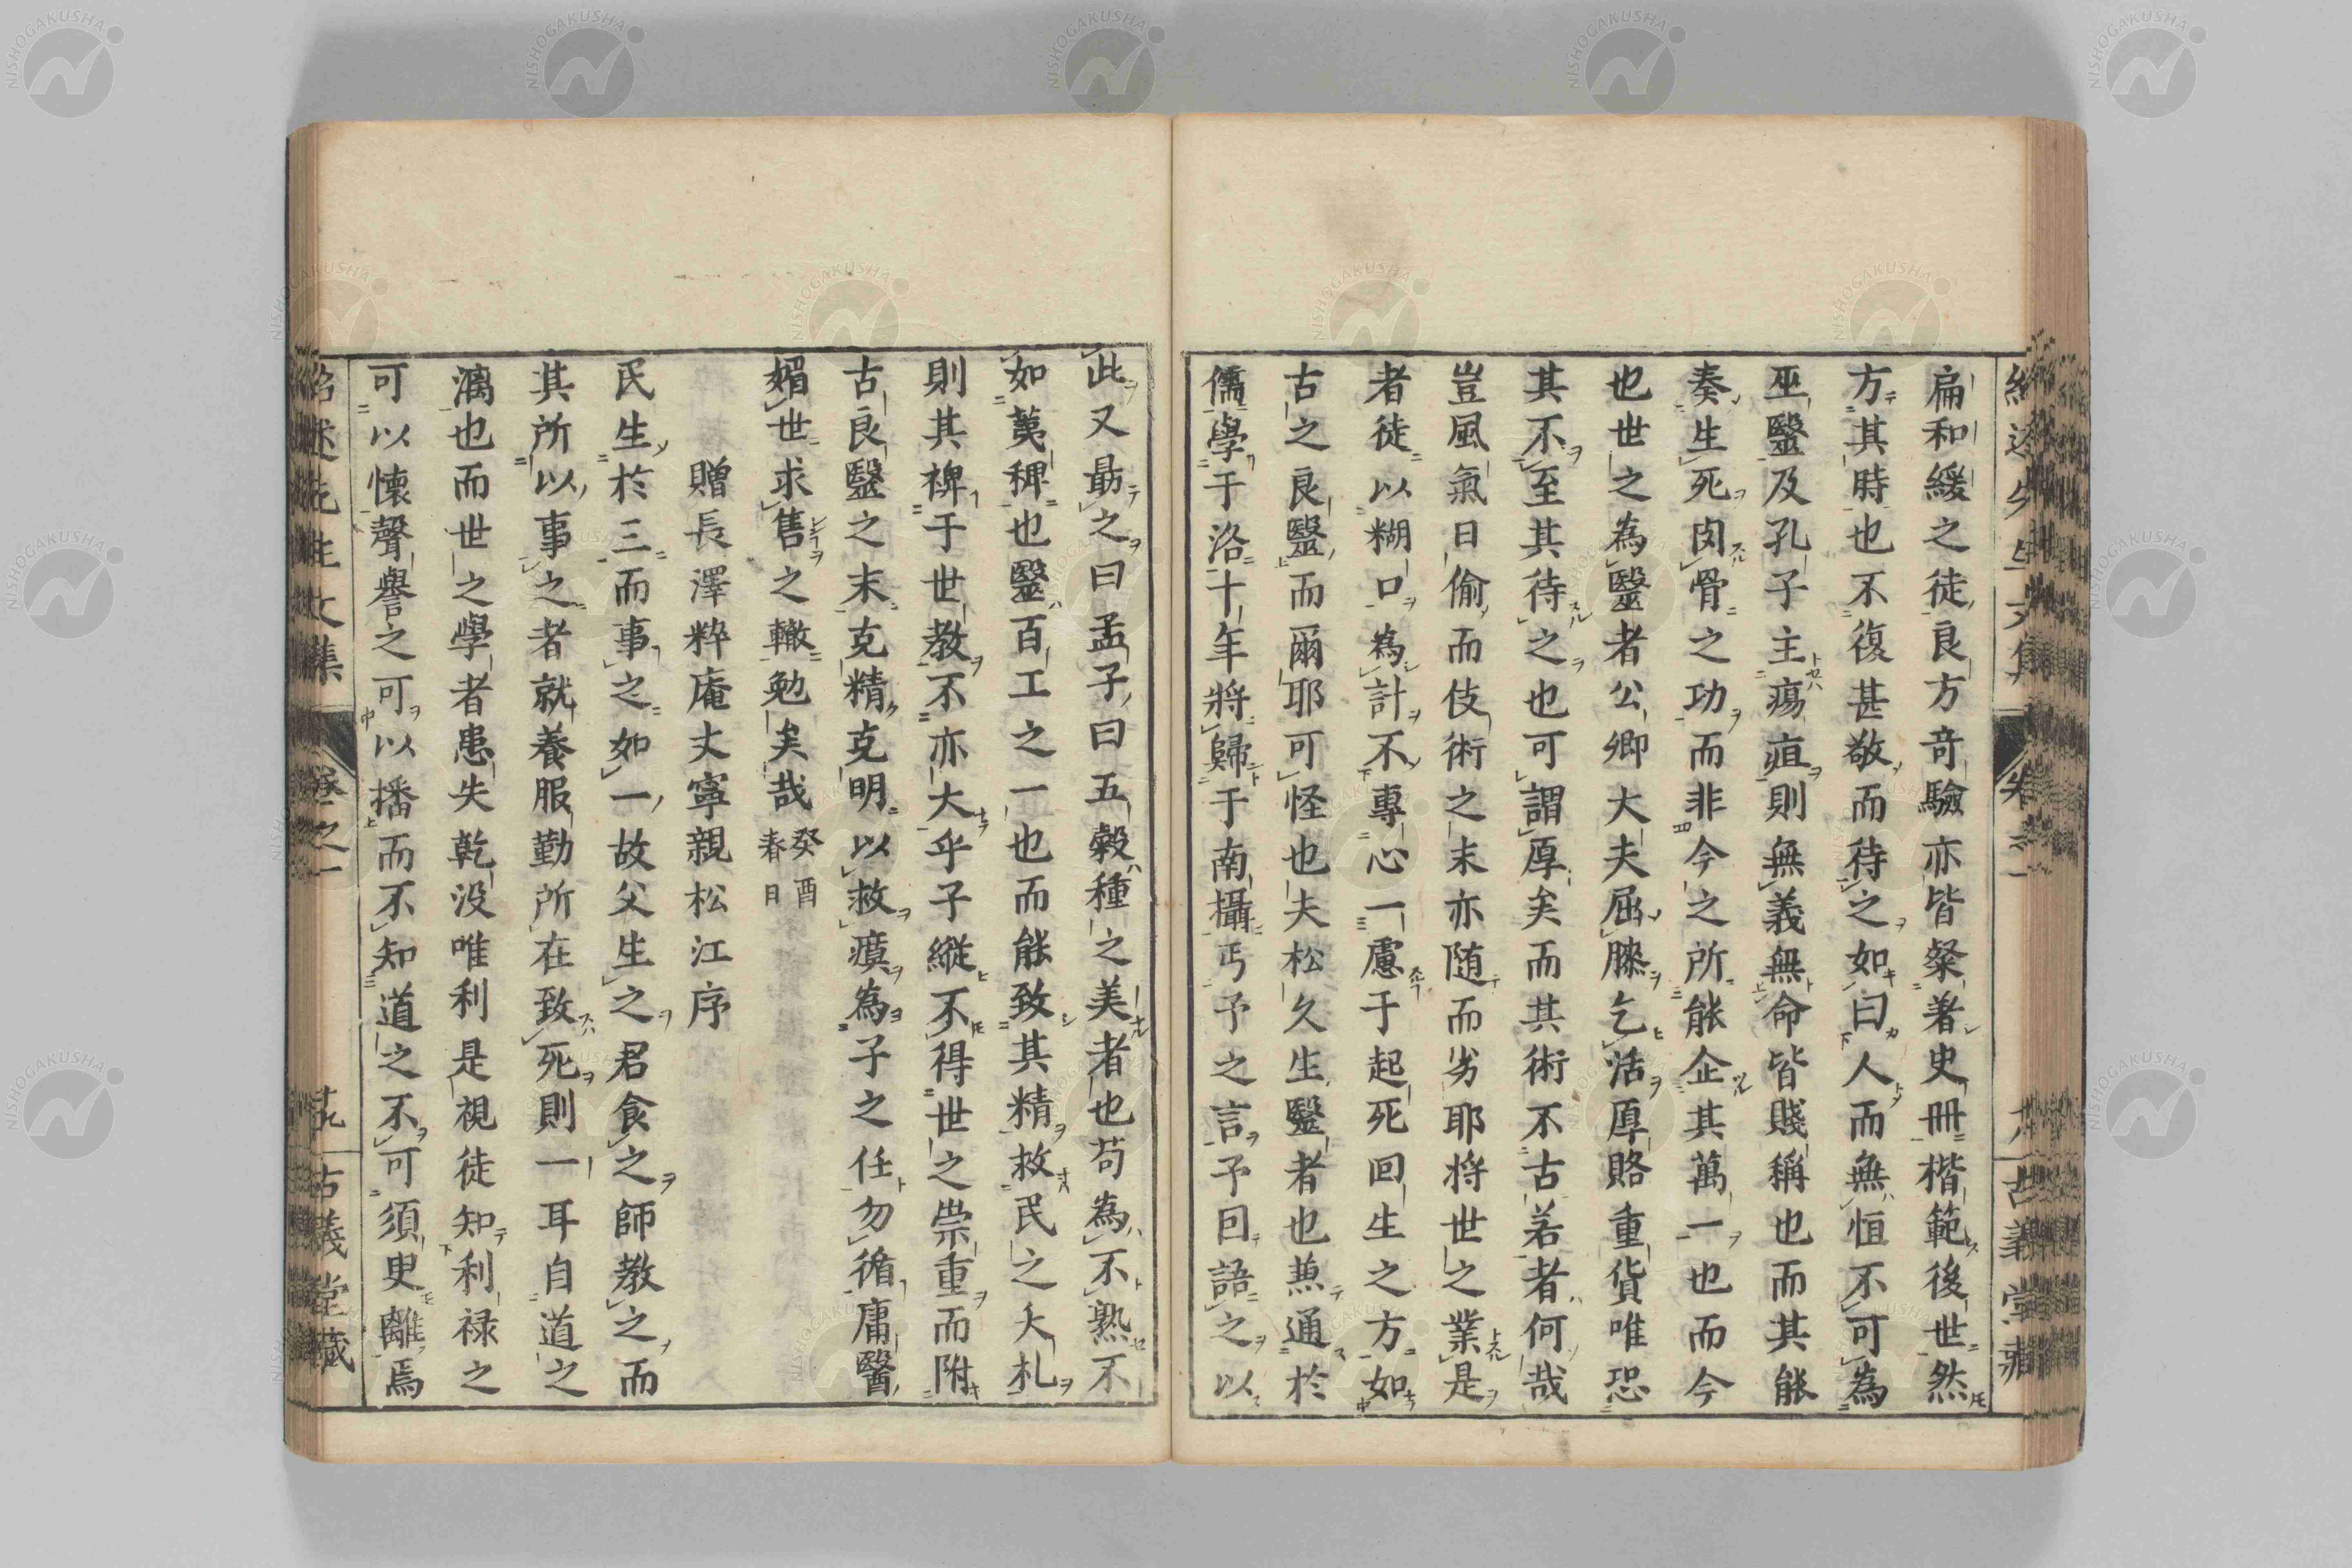 扁和緩之徒良方竒驗亦皆粲著史冊楷範後世然
方其時也不復甚敬而待之如曰人而無恒不可為
巫毉及孔子主瘍疽則無義無命皆賤稱也而其能
奏生死肉骨之功而非今之所能企其萬一也而今
也世之為毉者公卿大夫屈膝乞活厚賂重貨唯恐
其不至其待之也可謂厚矣而其術不古若者何哉
豈風氣日偷而伎術之末亦随而劣耶将世之業是
者徒以糊口為計不專心一慮于起死回生之方如
古之良毉而爾耶可怪也夫松久生毉者也兼通於
儒學于洛十年將歸于南攝丐予之言予囙語之以
此又勗之曰孟子曰五穀種之美者也苟為不熟不
如荑稗也毉百工之一也而能致其精救民之夭札
則其裨于世教不亦大乎子縱不得世之崇重而附
古良毉之末克精克明以救癀為子之任勿循庸醫
媚世求售之轍勉矣哉 癸酉春日
贈長澤粹庵丈寧親松江序
民生於三而事之如一故父生之君食之師教之而
其所以事之者就養服勤所在致死則一耳自道之
漓也而世之學者患失乾没唯利是視徒知利禄之
可以懷聲譽之可以播而不知道之不可須臾離焉
紹述先生文集 卷之一 古義堂藏